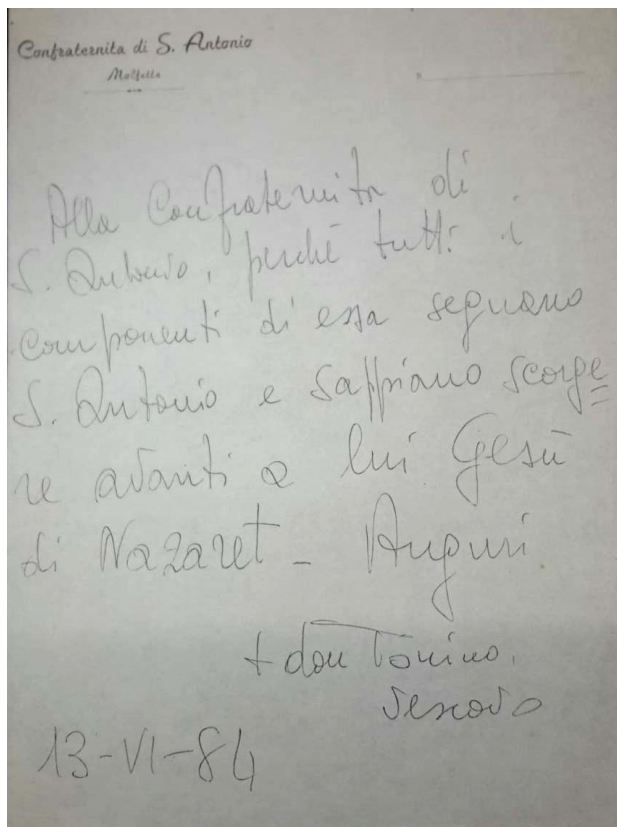 Confraternita di S. Antonio
Molfetta
Alla Confraternita di
S. Antonio, perché tutti i
componenti di essa seguano
S. Antonio e sappiano scorge
re avanti a lui Gesù
di Nazaret - Auguri
+ don Tonino,
Vescovo
13-VI-84